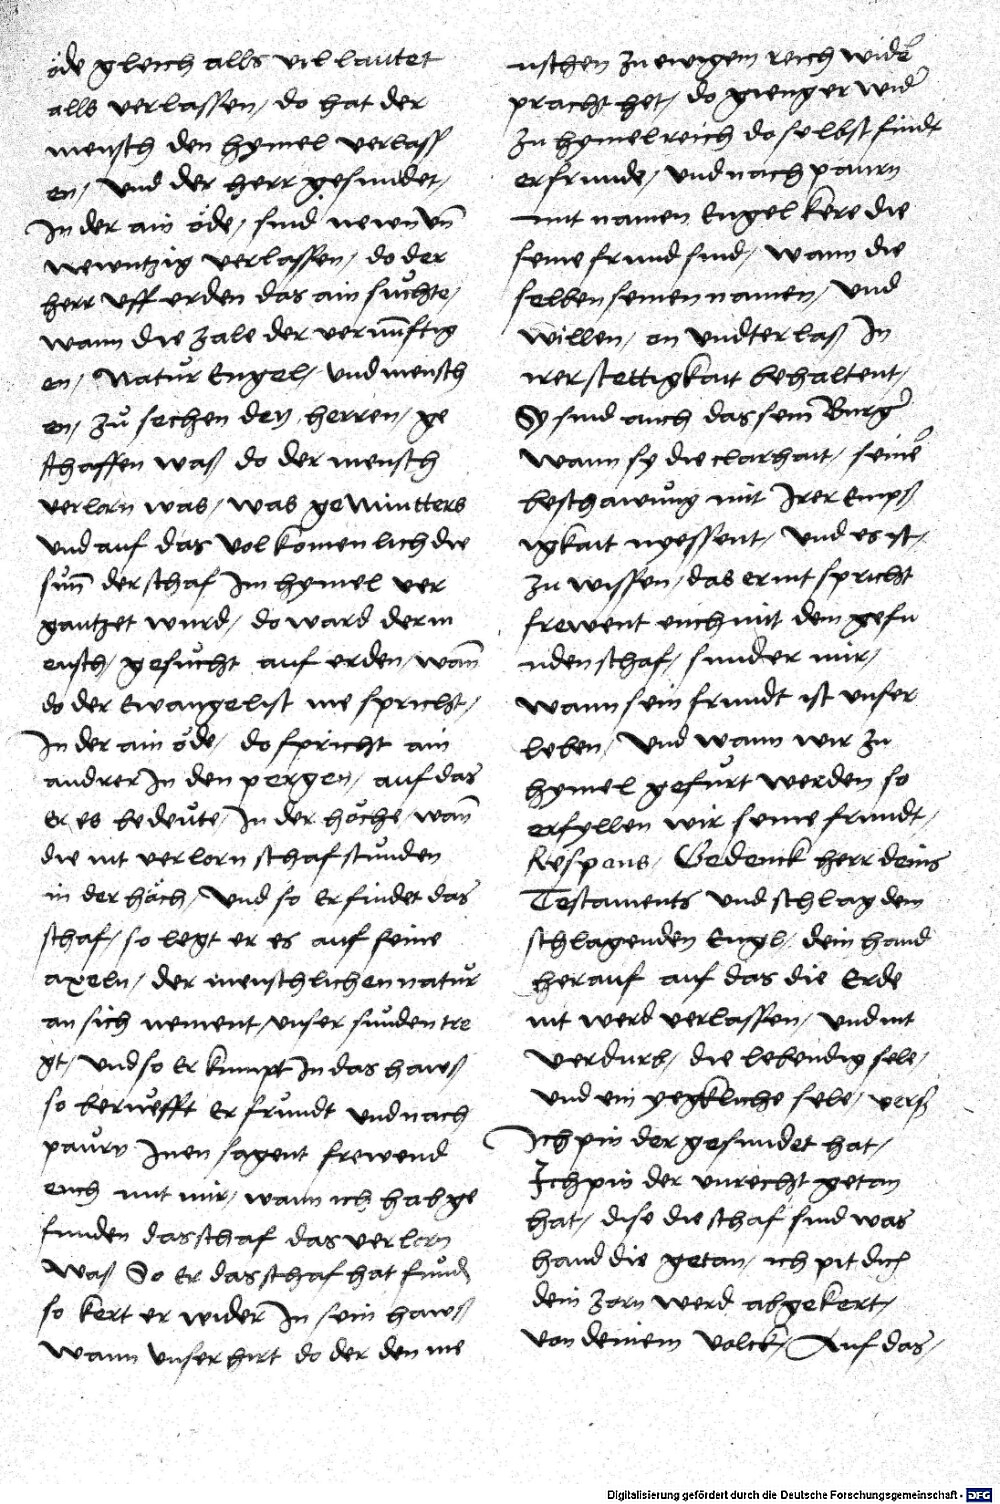 öde gleich alls vil lautet
alls verlassen / do hat der
mensch den hymel verlass
en / Und der herr gesundet /
In der ain öde / sind newn vn̄
newntzig verlassen / do der
herr uff erden das ain suchte /
wann die zale der vernūftig
en / Natur Engel / und mensch
en / zu sechen den herren / ge
schaffen waß do der mensch
verlorn was / was ge
und auf das volkomenlich die
sum̄ der schaf Im hymel ver
gantzet wurd / do ward der m
ensch / gesucht auf erden / wan̄
do der Ewangelist me spricht /
In der ain öde / do spricht ain
andrer In den pergen / auf das
Er es bedeute / In der höche wan̄
die nit verlorn schaf stunden
in der häch / Und so Er findet das
schaf / so legt er es auf seine
axeln / der menschlichen natur
an sich nement / unser sunden tre
gt / und so Er kumpt In das haws /
so beruefft Er frundt und nach
paurn Inen sagent frewend
euch mit mir / wann ich hab ge
funden das schaf das verlorn
Waß So Er das schaf hat fund
so kert er wider In sein haws /
Wann unser hirt do der den me
nschen zu ewigem reich wider
pracht het / do gieng er wider
zu hymelreich do selbst findt
er frunde / und nachpaurn
mit namen Engel kere die
seine frund sind / wann die
selben seinen namen / und
willen / on undterlaß In
irer stettigkait behaltent /
Sy sind auch das sein Burger
wann sy die clarhait / seiner
beschawung mit Irer Emps
igkait nyessent / Und es ist /
zu wissen / das er nit spricht
frewent euch mit dem gefu
nden schaf / sunder mir /
wann sein frundt ist unser
leben / Und wann wir zu
hymel gefurt werden so
erfyllen wir seine frundt /
Respons / Gedenck herr deins
Testaments und schlag dem
schlagenden Engl / dein hand
herauf auf das die Erde
nit werd verlassen / und nit
verdurb / die lebendig sele /
und ein yegkliche sele / verß
Ich pin der gesundet hat /
Ich pin der unrecht getan
hat / dise die schaf sind was
hand die getan / ich pit dich
dein zorn werd abgekert /
von deinem volck / Auf das /
Digitalisierung gefördert durch die Deutsche Forschungsgemeinschaft - DFG